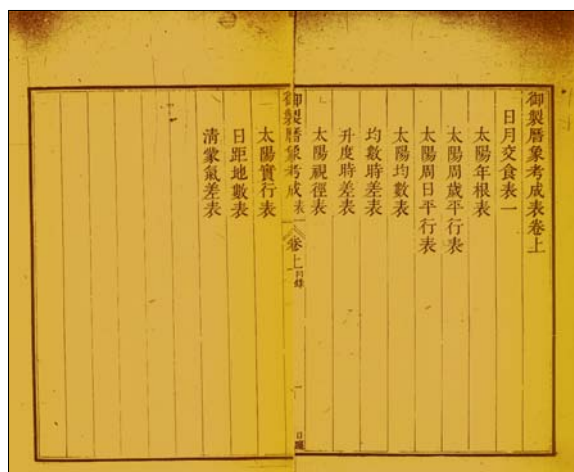 御製曆象考成表卷上
日月交食表一
太陽年根表
太陽周歲平行表
太陽周日平行表
太陽均數表
均數時差表
升度時差表
太陽視徑表
御製曆象考成表
卷上
目錄
一
太陽實行表
日距地數表
清蒙氣差表